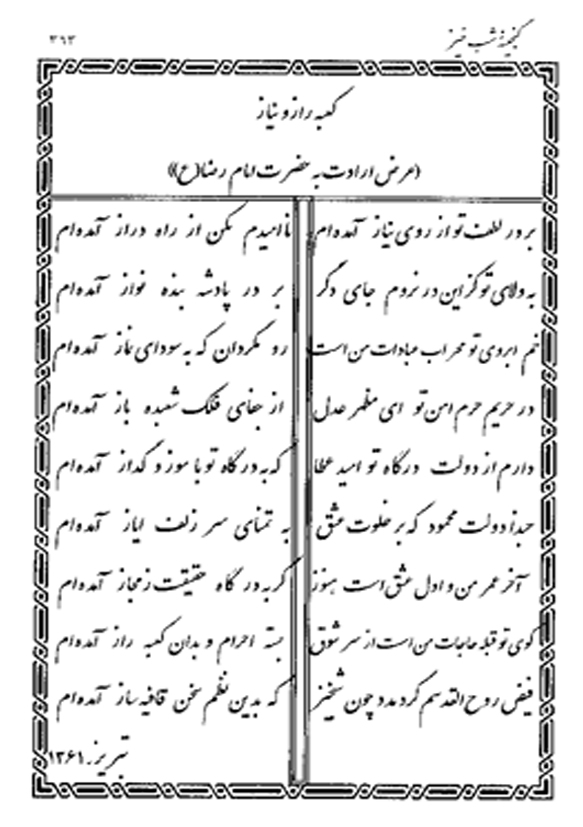 گنجینه شب خیز
۳۱۳
کعبه راز و نیاز
(عرض ارادت به حضرت امام رضا(ع))
بر در لطف تو از روی نیاز آمده‌ام نا امیدم مکن از راه دراز آمده‌ام
به ولای تو کز این در نروم جای دگر بر در پادشه بنده نواز آمده‌ام
خم ابروی تو محراب عبادات من است رو مگردان که به سودای نماز آمده‌ام
در حریم حرم امن تو ای مظهر عدل از جفای فلک شعبده باز آمده‌ام
دارم از دولت درگاه تو امید عطا که به درگاه تو با سوز و گداز آمده‌ام
حبذا دولت محمود که بر خلوت عشق به تمنای سر زلف ایاز آمده‌ام
آخر عمر من و اول عشق است هنوز گر به درگاه حقیقت ز مجاز آمده‌ام
کوی تو قبله حاجات من است از سر شوق بسته احرام و بدان کعبه راز آمده‌ام
فیض روح القدسم کرد مدد چون شبخیز که بدین نظم سخن قافیه ساز آمده‌ام
تبریز. ۱۳۶۱